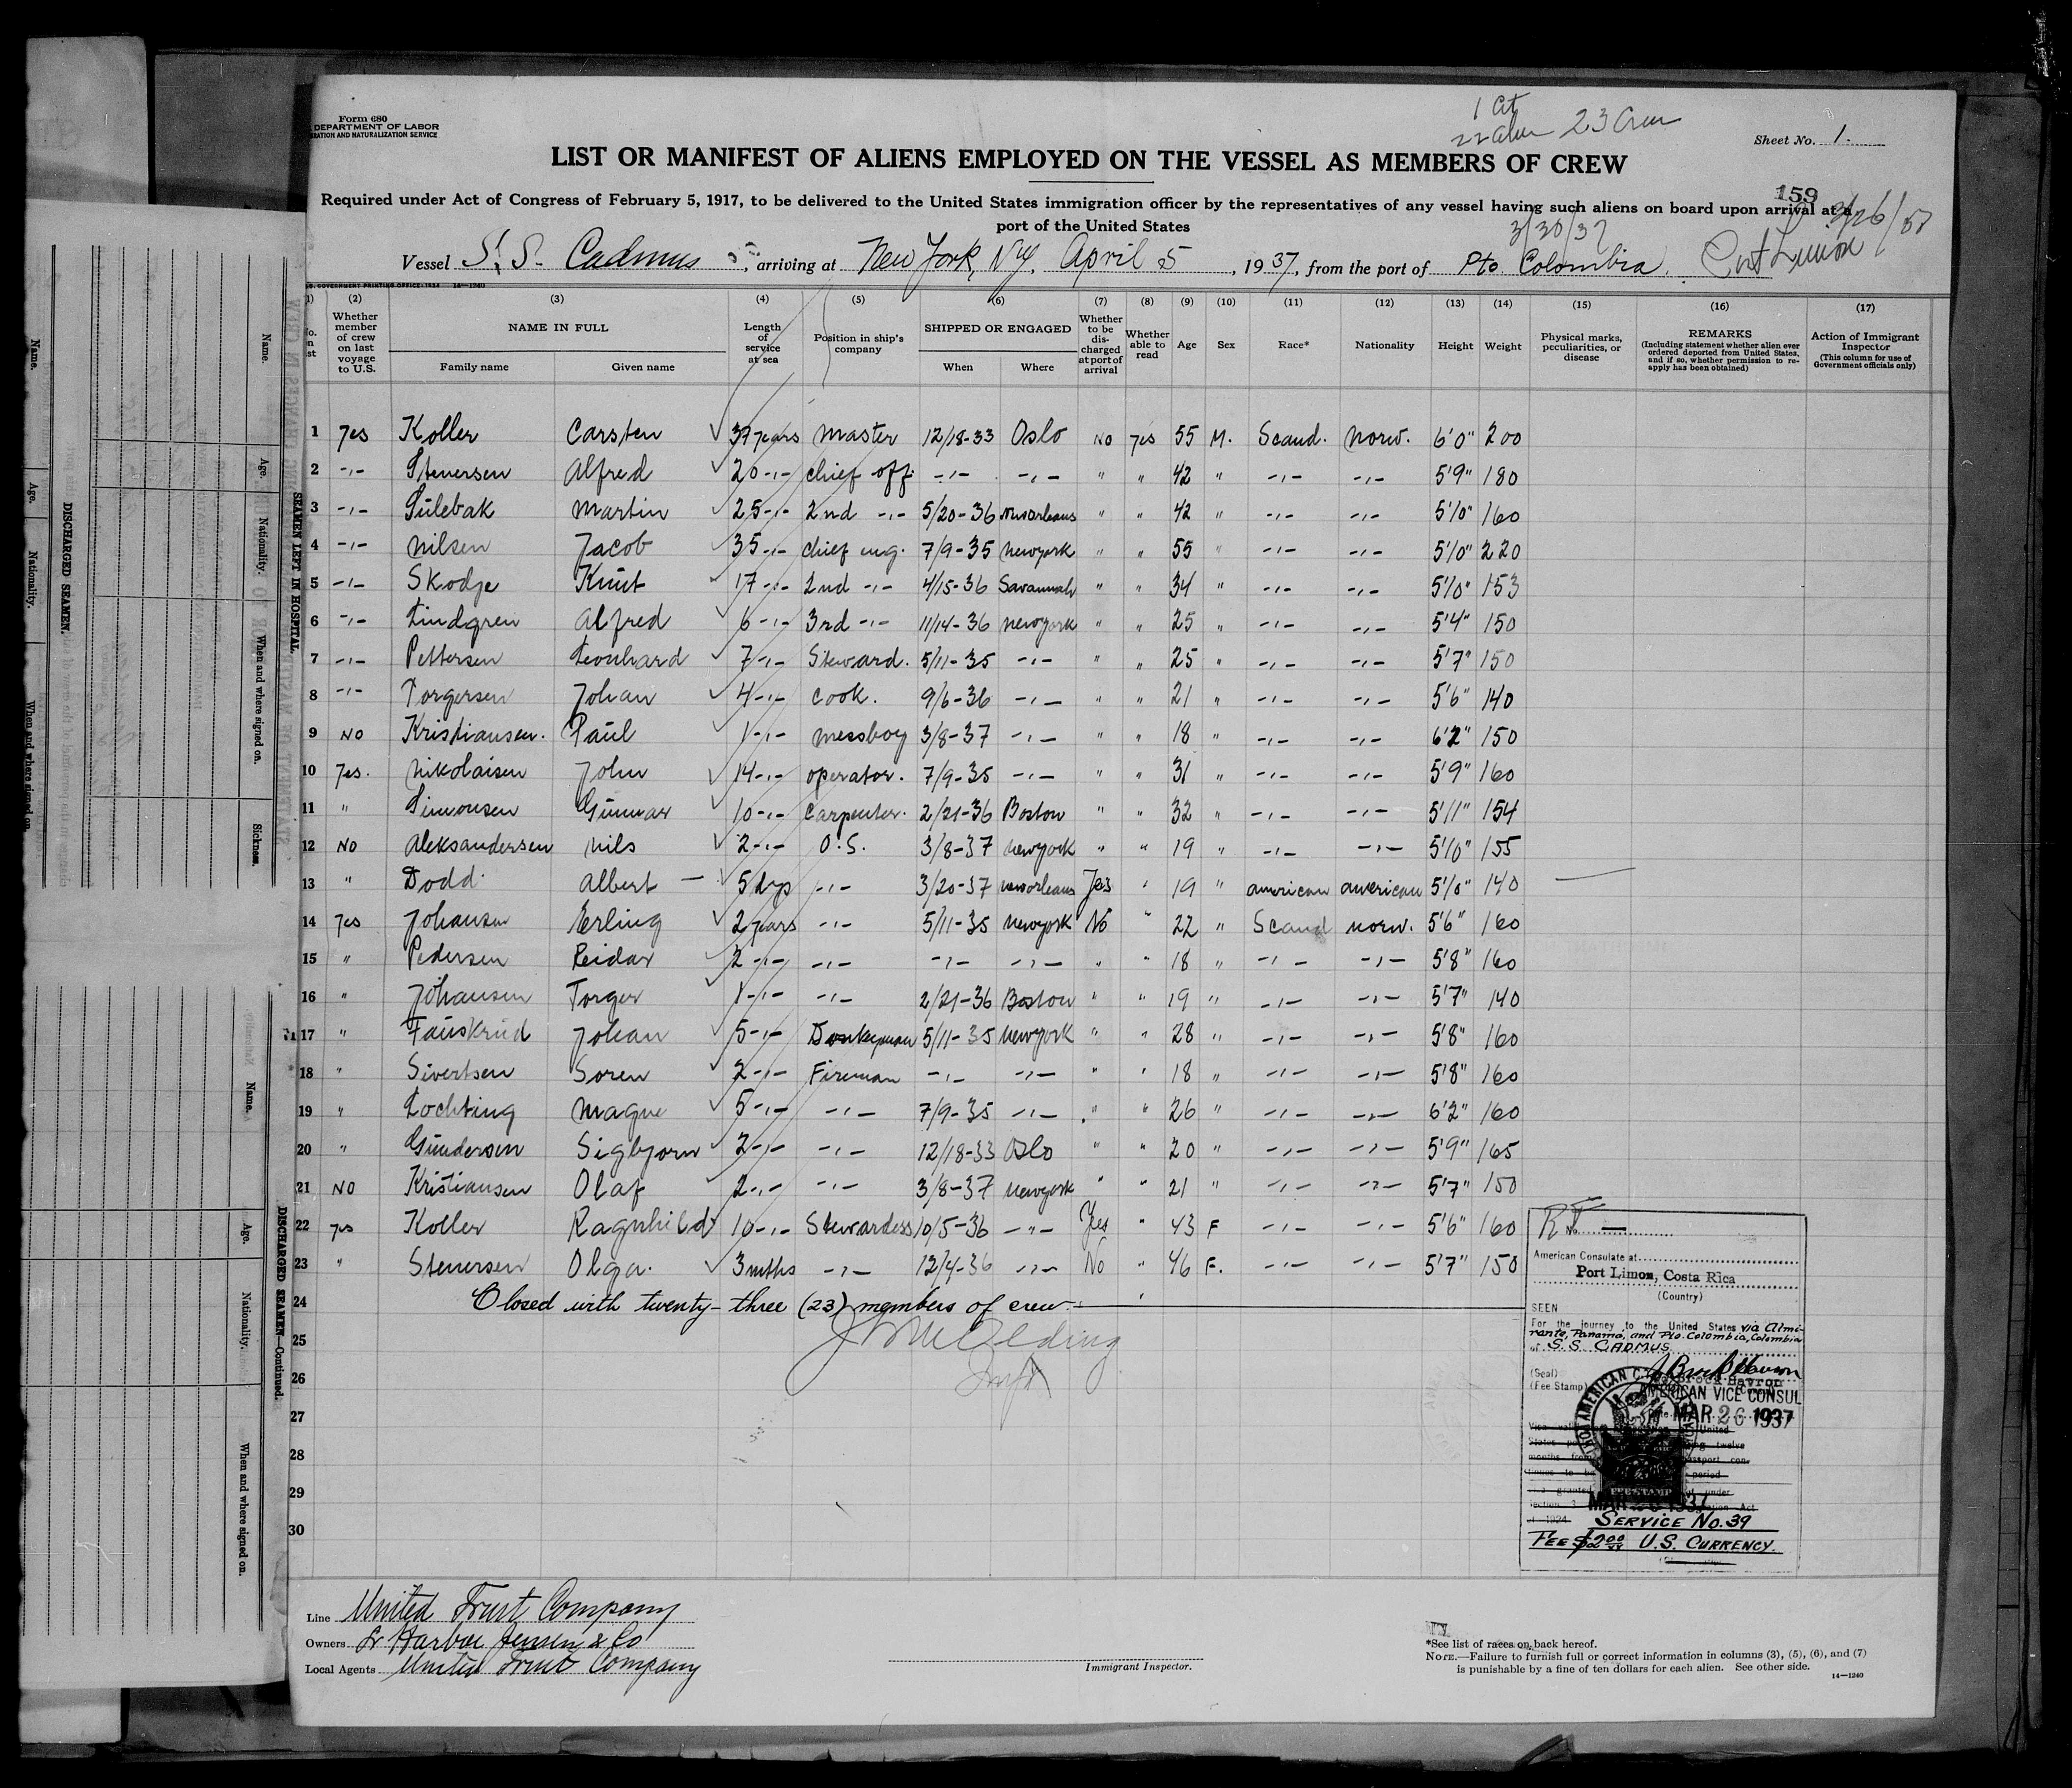 Form 680
DEPARTMENT OF LABOR
RATION AND NATURALIZATION SERVICE
1 Cit
22 alien 23 Crew
Sheet No. 1.
LIST OR MANIFEST OF ALIENS EMPLOYED ON THE VESSEL AS MEMBERS OF CREW
159
Required under Act of Congress of February 5, 1917, to be delivered to the United States immigration officer by the representatives of any vessel having such aliens on board upon arrival at a
port of the United States
3/30/37
Vessel S.S. Cadmus, arriving at New York, N.Y. April 5, 1937, from the port of Pto Colombia. Port Limon
(2) (3) (4) (5) (6) (7) (8) (9) (10) (11) (12) (13) (14) (15) (16) (17)
Whether member of crew on last voyage to U.S.
NAME IN FULL
Family name Given name
Length of service at sea
Position in ship's company
SHIPPED OR ENGAGED
When Where
Whether to be discharged at port of arrival
Whether able to read
Age
Sex
Race*
Nationality
Height
Weight
Physical marks, peculiarities, or disease
REMARKS
(Including statement whether alien ever ordered deported from United States, and if so, whether permission to re-apply has been obtained)
Action of Immigrant Inspector
(This column for use of Government officials only)
1 Yes Koller Carsten 37 years Master 12/18-33 Oslo No Yes 55 M. Scand. Norw. 6'0" 200
2 -"- Stenersen Alfred 20 -"- chief off. -"- -"- " " 42 " -"- -"- 5'9" 180
3 -"- Sulebak Martin 25 -"- 2nd -"- 5/20-36 New orleans " " 42 " -"- -"- 5'10" 160
4 -"- Nilsen Jacob 35 -"- chief eng. 7/9-35 New york " " 55 " -"- -"- 5'10" 220
5 -"- Skodje Knut 17 -"- 2nd -"- 4/15-36 Savannah " " 34 " -"- -"- 5'10" 153
6 -"- Lindgren Alfred 6 -"- 3rd -"- 11/14-36 New york " " 25 " -"- -"- 5'4" 150
7 -"- Pettersen Leonhard 7 -"- Steward. 5/11-35 -"- " " 25 " -"- -"- 5'7" 150
8 -"- Torgersen Johan 4 -"- Cook. 9/6-36 -"- " " 21 " -"- -"- 5'6" 140
9 NO Kristiansen. Paul 1 -"- messboy 3/8-37 -"- " " 18 " -"- -"- 6'2" 150
10 Yes. Nikolaisen John 14 -"- operator. 7/9-35 -"- " " 31 " -"- -"- 5'9" 160
11 " Simonsen Gunnar 10 -"- Carpenter. 2/21-36 Boston " " 32 " -"- -"- 5'11" 154
12 NO Aleksandersen Nils 2 -"- O.S. 3/8-37 New york " " 19 " -"- -"- 5'10" 155
13 " Dodd Albert 5 dys -"- 3/20-37 New orleans Yes " 19 " american american 5'10" 140
14 Yes Johansen Erling 2 years -"- 5/11-35 New york No " 22 " Scand norw. 5'6" 160
15 " Pedersen Reidar 2 -"- -"- -"- -"- " " 18 " -"- -"- 5'8" 160
16 " Johansen Torger 1 -"- -"- 2/21-36 Boston " " 19 " -"- -"- 5'7" 140
17 " Fauskrud Johan 5 -"- Donkeyman 5/11-35 New york " " 28 " -"- -"- 5'8" 160
18 " Sivertsen Soren 2 -"- Fireman -"- -"- " " 18 " -"- -"- 5'8" 160
19 " Lochting Magne 5 -"- -"- 7/9-35 -"- " " 26 " -"- -"- 6'2" 160
20 " Gundersen Sigbjorn 2 -"- -"- 12/18-33 Oslo " " 20 " -"- -"- 5'9" 165
21 NO Kristiansen Olaf 2 -"- -"- 3/8-37 New york " " 21 " -"- -"- 5'7" 150
22 yes Koller Ragnhild 10 -"- Stewardess 10/5-36 -"- Yes " 43 F -"- -"- 5'6" 160
23 " Stenersen Olga. 3 mths -"- 12/4-36 -"- No " 46 F. -"- -"- 5'7" 150
24 Closed with twenty-three (23) members of crew.
25
26
27
28
29
30
No.
American Consulate at
Port Limon, Costa Rica
(Country)
SEEN
For the journey to the United States via Almirante, Panama, and Pto. Colombia, Colombia
of S.S. CADMUS
(Seal)
(Fee Stamp)
AMERICAN VICE CONSUL
MAR 26 1937
MAR 26 1937
SERVICE NO. 39
FEE $2.00 U.S. CURRENCY.
Line United Fruit Company
Owners Harboe Jensen & Co
Local Agents United Fruit Company
Immigrant Inspector.
*See list of races on back hereof.
NOTE.—Failure to furnish full or correct information in columns (3), (5), (6), and (7)
is punishable by a fine of ten dollars for each alien. See other side.
14—1240
DISCHARGED SEAMEN.
Name. Age. Nationality. When and where signed on.
SEAMEN LEFT IN HOSPITAL
Name. Age. Nationality. When and where signed on. Sickness.
DISCHARGED SEAMEN—Continued.
Name. Age. Nationality. When and where signed on.